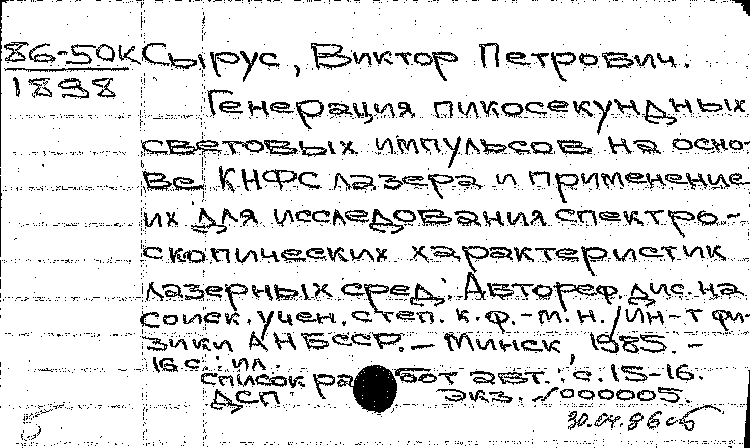 86-50к Сырус, Виктор Петрович.
1898
Генерация пикосекундных
световых импульсов на осно-
ве КНФС лазера и применение
их для исследования спектро-
скопических характеристик
лазерных сред: Автореф. дис. на
соиск. учен. степ. к.ф.-м.н. /Ин-т фи-
зики АН БССР. – Минск, 1985. –
16 с.: ил.
список работ авт.: с. 15-16.
ДСП Экз. №000005.
30.04.86